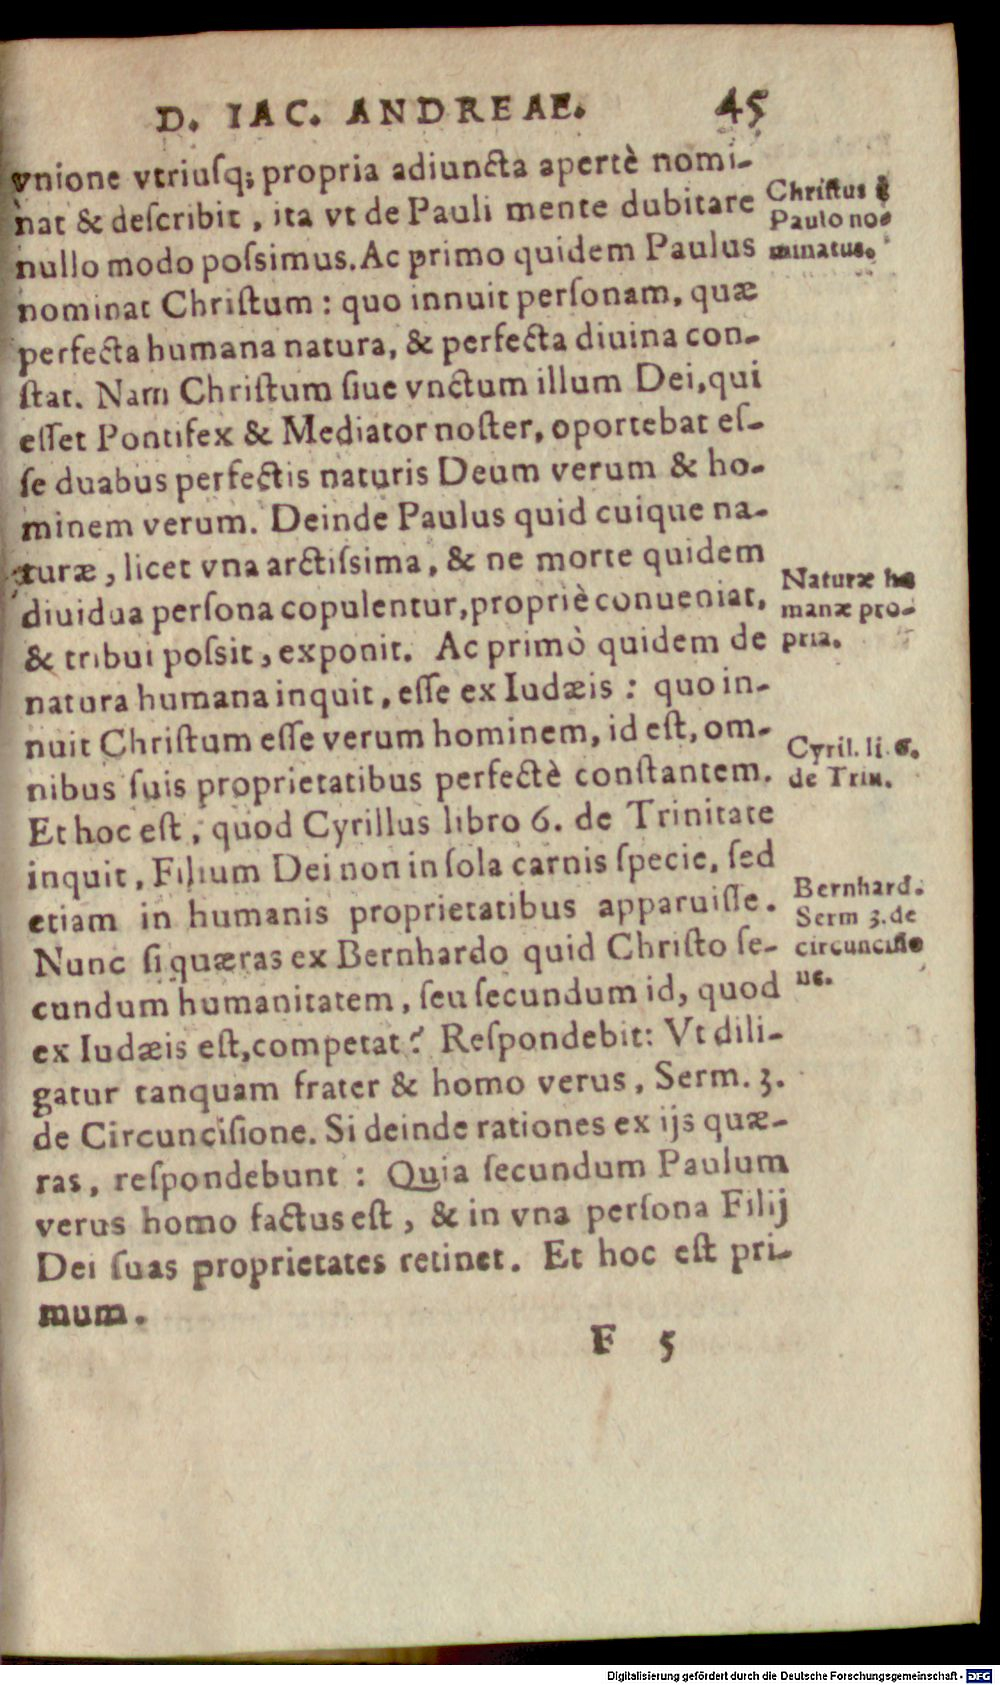 D. IAC. ANDREAE. 45
vnione vtriuſq; propria adiuncta apertè nomi-
nat & deſcribit, ita vt de Pauli mente dubitare
nullo modo poſsimus. Ac primo quidem Paulus
nominat Chriſtum: quo innuit perſonam, quæ
perfecta humana natura, & perfecta diuina con-
ſtat. Nam Chriſtum ſiue vnctum illum Dei, qui
eſſet Pontifex & Mediator noſter, oportebat eſ-
ſe duabus perfectis naturis Deum verum & ho-
minem verum. Deinde Paulus quid cuique na-
turæ, licet vna arctiſsima, & ne morte quidem
diuidua perſona copulentur, propriè conueniat,
& tribui poſsit, exponit. Ac primò quidem de
natura humana inquit, eſſe ex Iudæis: quo in-
nuit Chriſtum eſſe verum hominem, id eſt, om-
nibus ſuis proprietatibus perfectè conſtantem.
Et hoc eſt, quod Cyrillus libro 6. de Trinitate
inquit, Filium Dei non in ſola carnis ſpecie, ſed
etiam in humanis proprietatibus apparuiſſe.
Nunc ſi quæras ex Bernhardo quid Chriſto ſe-
cundum humanitatem, ſeu ſecundum id, quod
ex Iudæis eſt, competat? Reſpondebit: Vt dili-
gatur tanquam frater & homo verus, Serm. 3.
de Circunciſione. Si deinde rationes ex ijs quæ-
ras, reſpondebunt: Quia ſecundum Paulum
verus homo factus eſt, & in vna perſona Filij
Dei ſuas proprietates retinet. Et hoc eſt pri-
mum.
F 5
Chriſtus à
Paulo no-
minatus.
Naturæ hu
manæ pro-
pria.
Cyril. li. 6.
de Trin.
Bernhard.
Serm 3. de
circunciſio
ne.
Digitalisierung gefördert durch die Deutsche Forschungsgemeinschaft - DFG